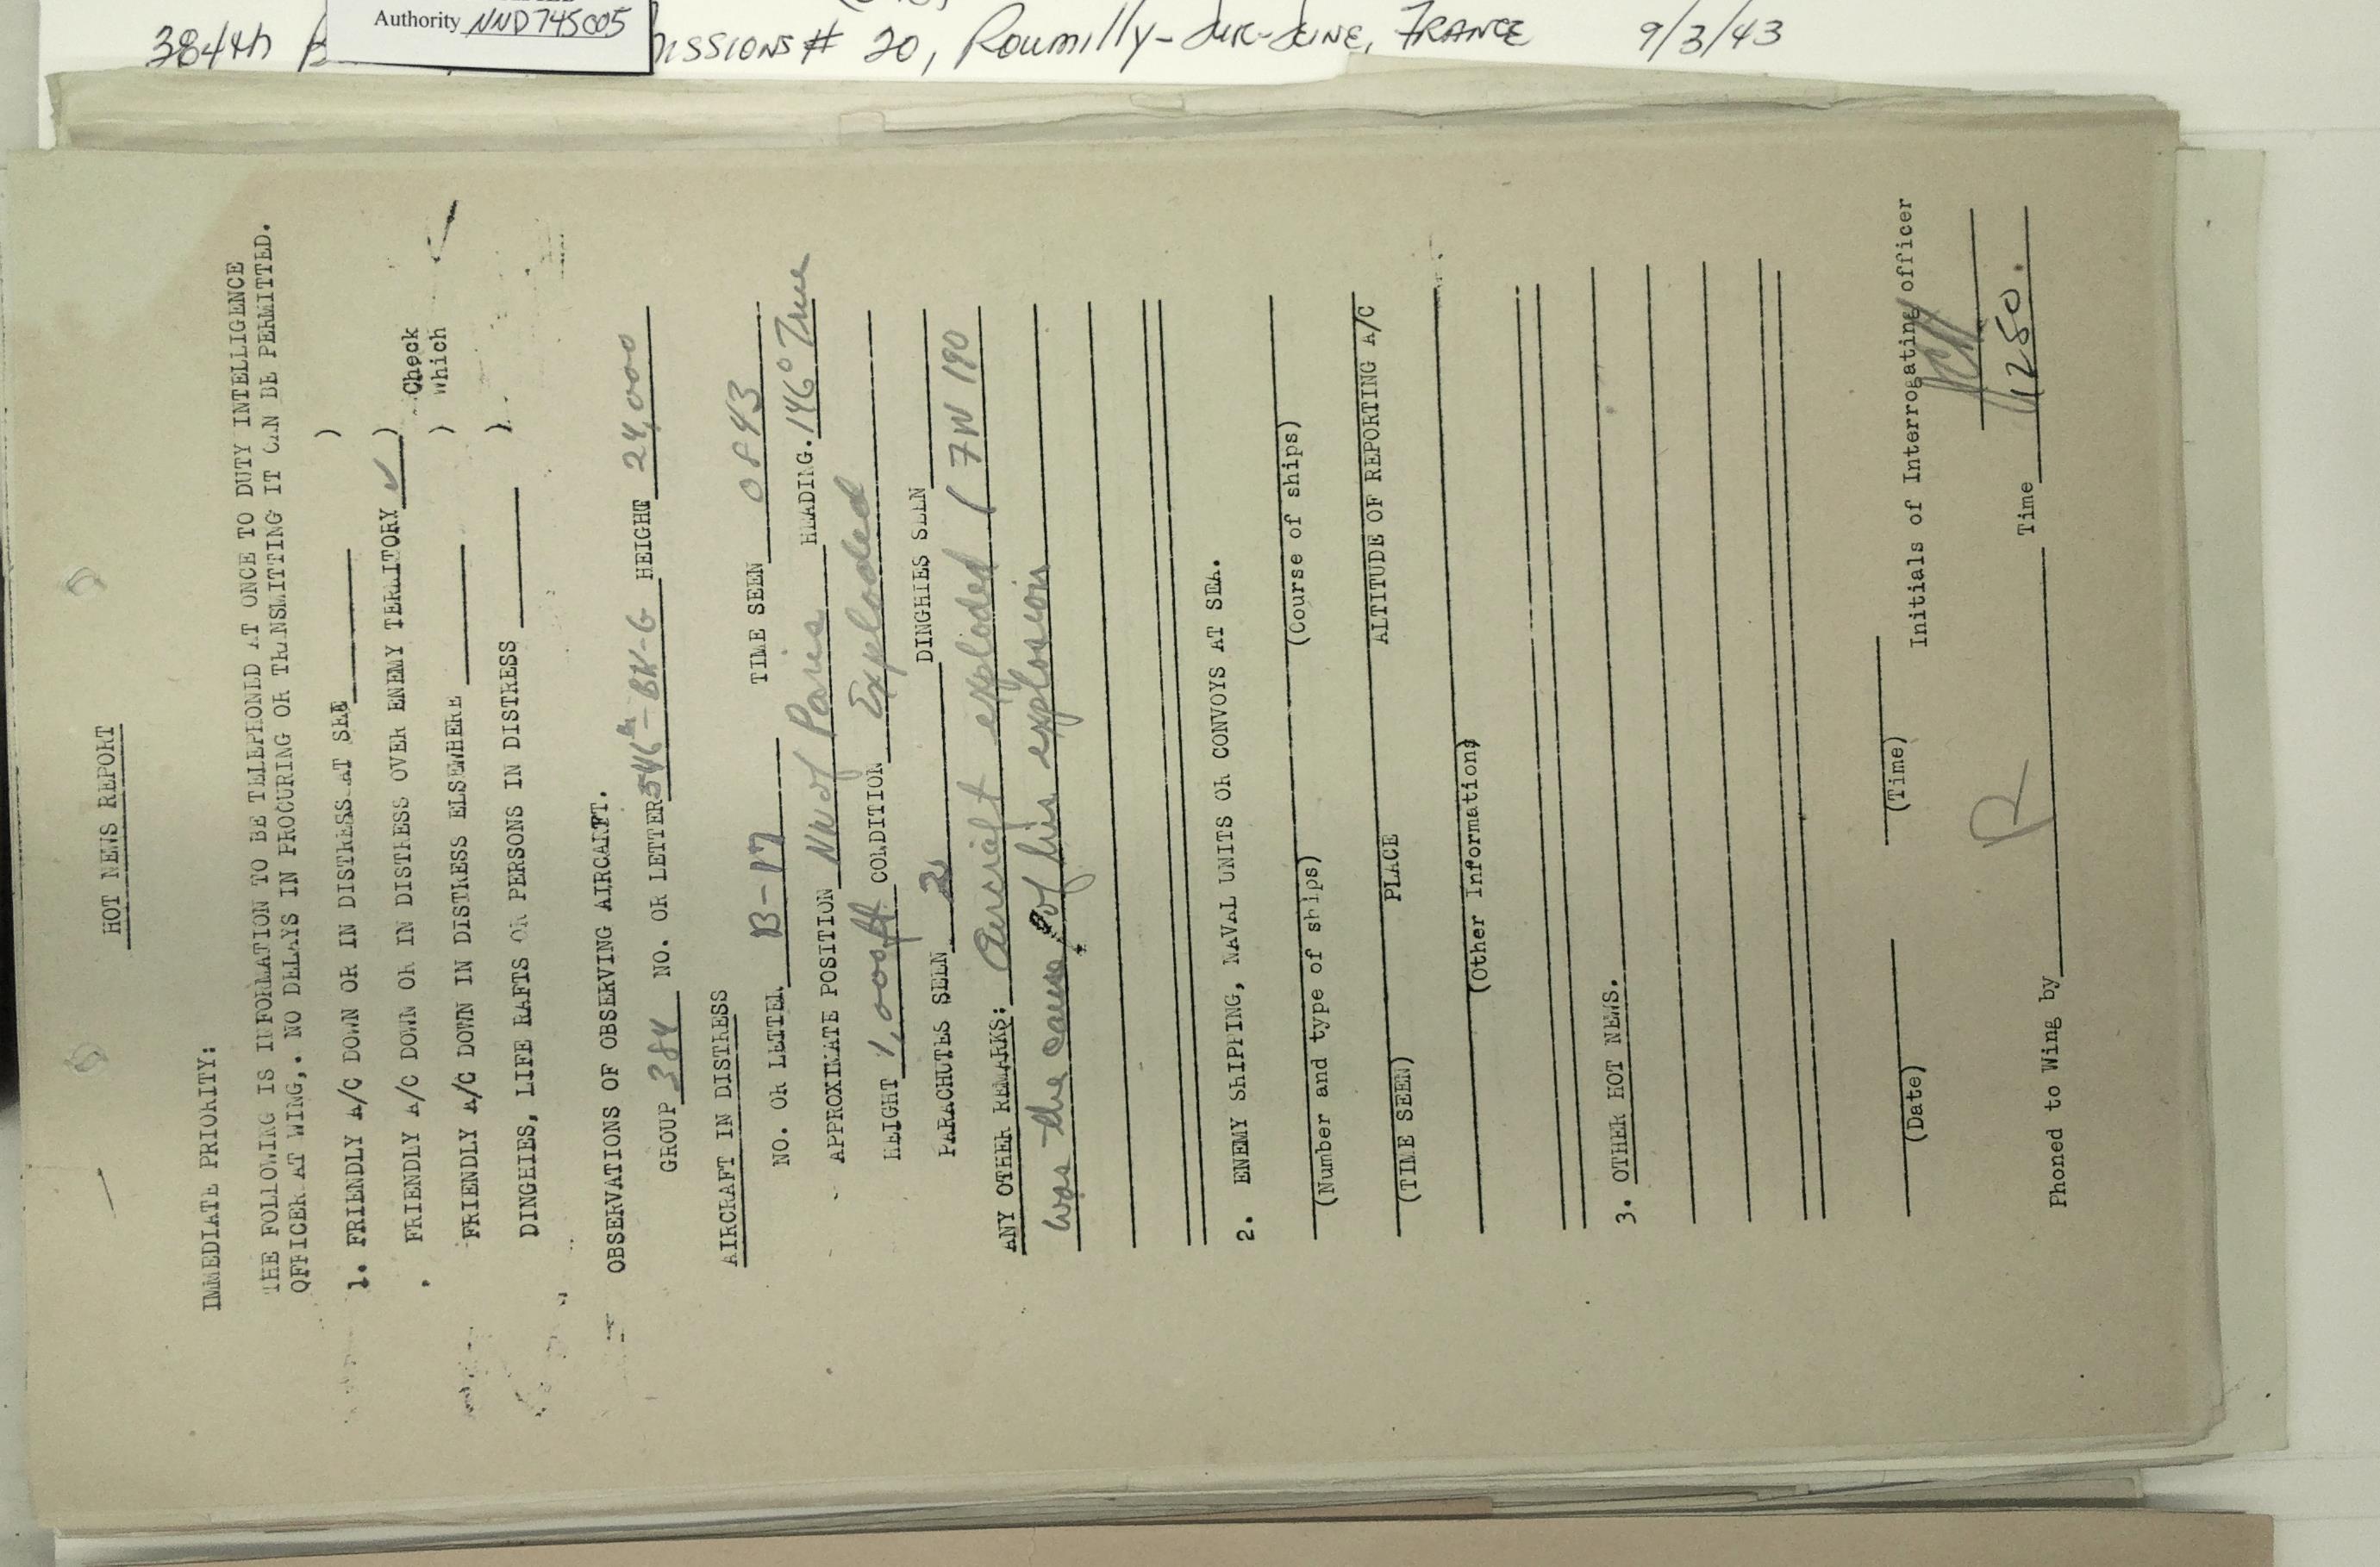 Authority NND745005
384th B missions # 20, Roumilly-Sur-Seine, FRANCE 9/3/43
HOT NEWS REPORT
IMMEDIATE PRIORITY:
THE FOLLOWING IS INFORMATION TO BE TELEPHONED AT ONCE TO DUTY INTELLIGENCE
OFFICER AT WING,. NO DELAYS IN PROCURING OR TRANSMITTING IT CAN BE PERMITTED.
1. FRIENDLY A/C DOWN OR IN DISTRESS AT SEA )
FRIENDLY A/C DOWN OR IN DISTRESS OVER ENEMY TERRITORY ✓ ) Check
FRIENDLY A/C DOWN IN DISTRESS ELSEWHERE ) Which ✓
DINGHIES, LIFE RAFTS OR PERSONS IN DISTRESS )
OBSERVATIONS OF OBSERVING AIRCARFT.
GROUP 384 NO. OR LETTER 546th-BK-G HEIGHT 24,000
AIRCRAFT IN DISTRESS
NO. OR LETTER B-17 TIME SEEN 0843
APPROXIMATE POSITION NW of Paris HEADING. 146° True
HEIGHT 1,000ft CONDITION Exploded
PARACHUTES SEEN 2 DINGHIES SEEN
ANY OTHER REMARKS: Aircraft exploded 1 FW 190
was the cause of his explosion
2. ENEMY SHIPPING, NAVAL UNITS OR CONVOYS AT SEA.
(Number and type of ships) (Course of ships)
(TIME SEEN) PLACE ALTITUDE OF REPORTING A/C
(Other Information)
3. OTHER HOT NEWS.
(Date) (Time) Initials of Interrogating officer
Phoned to Wing by R Time 1250.